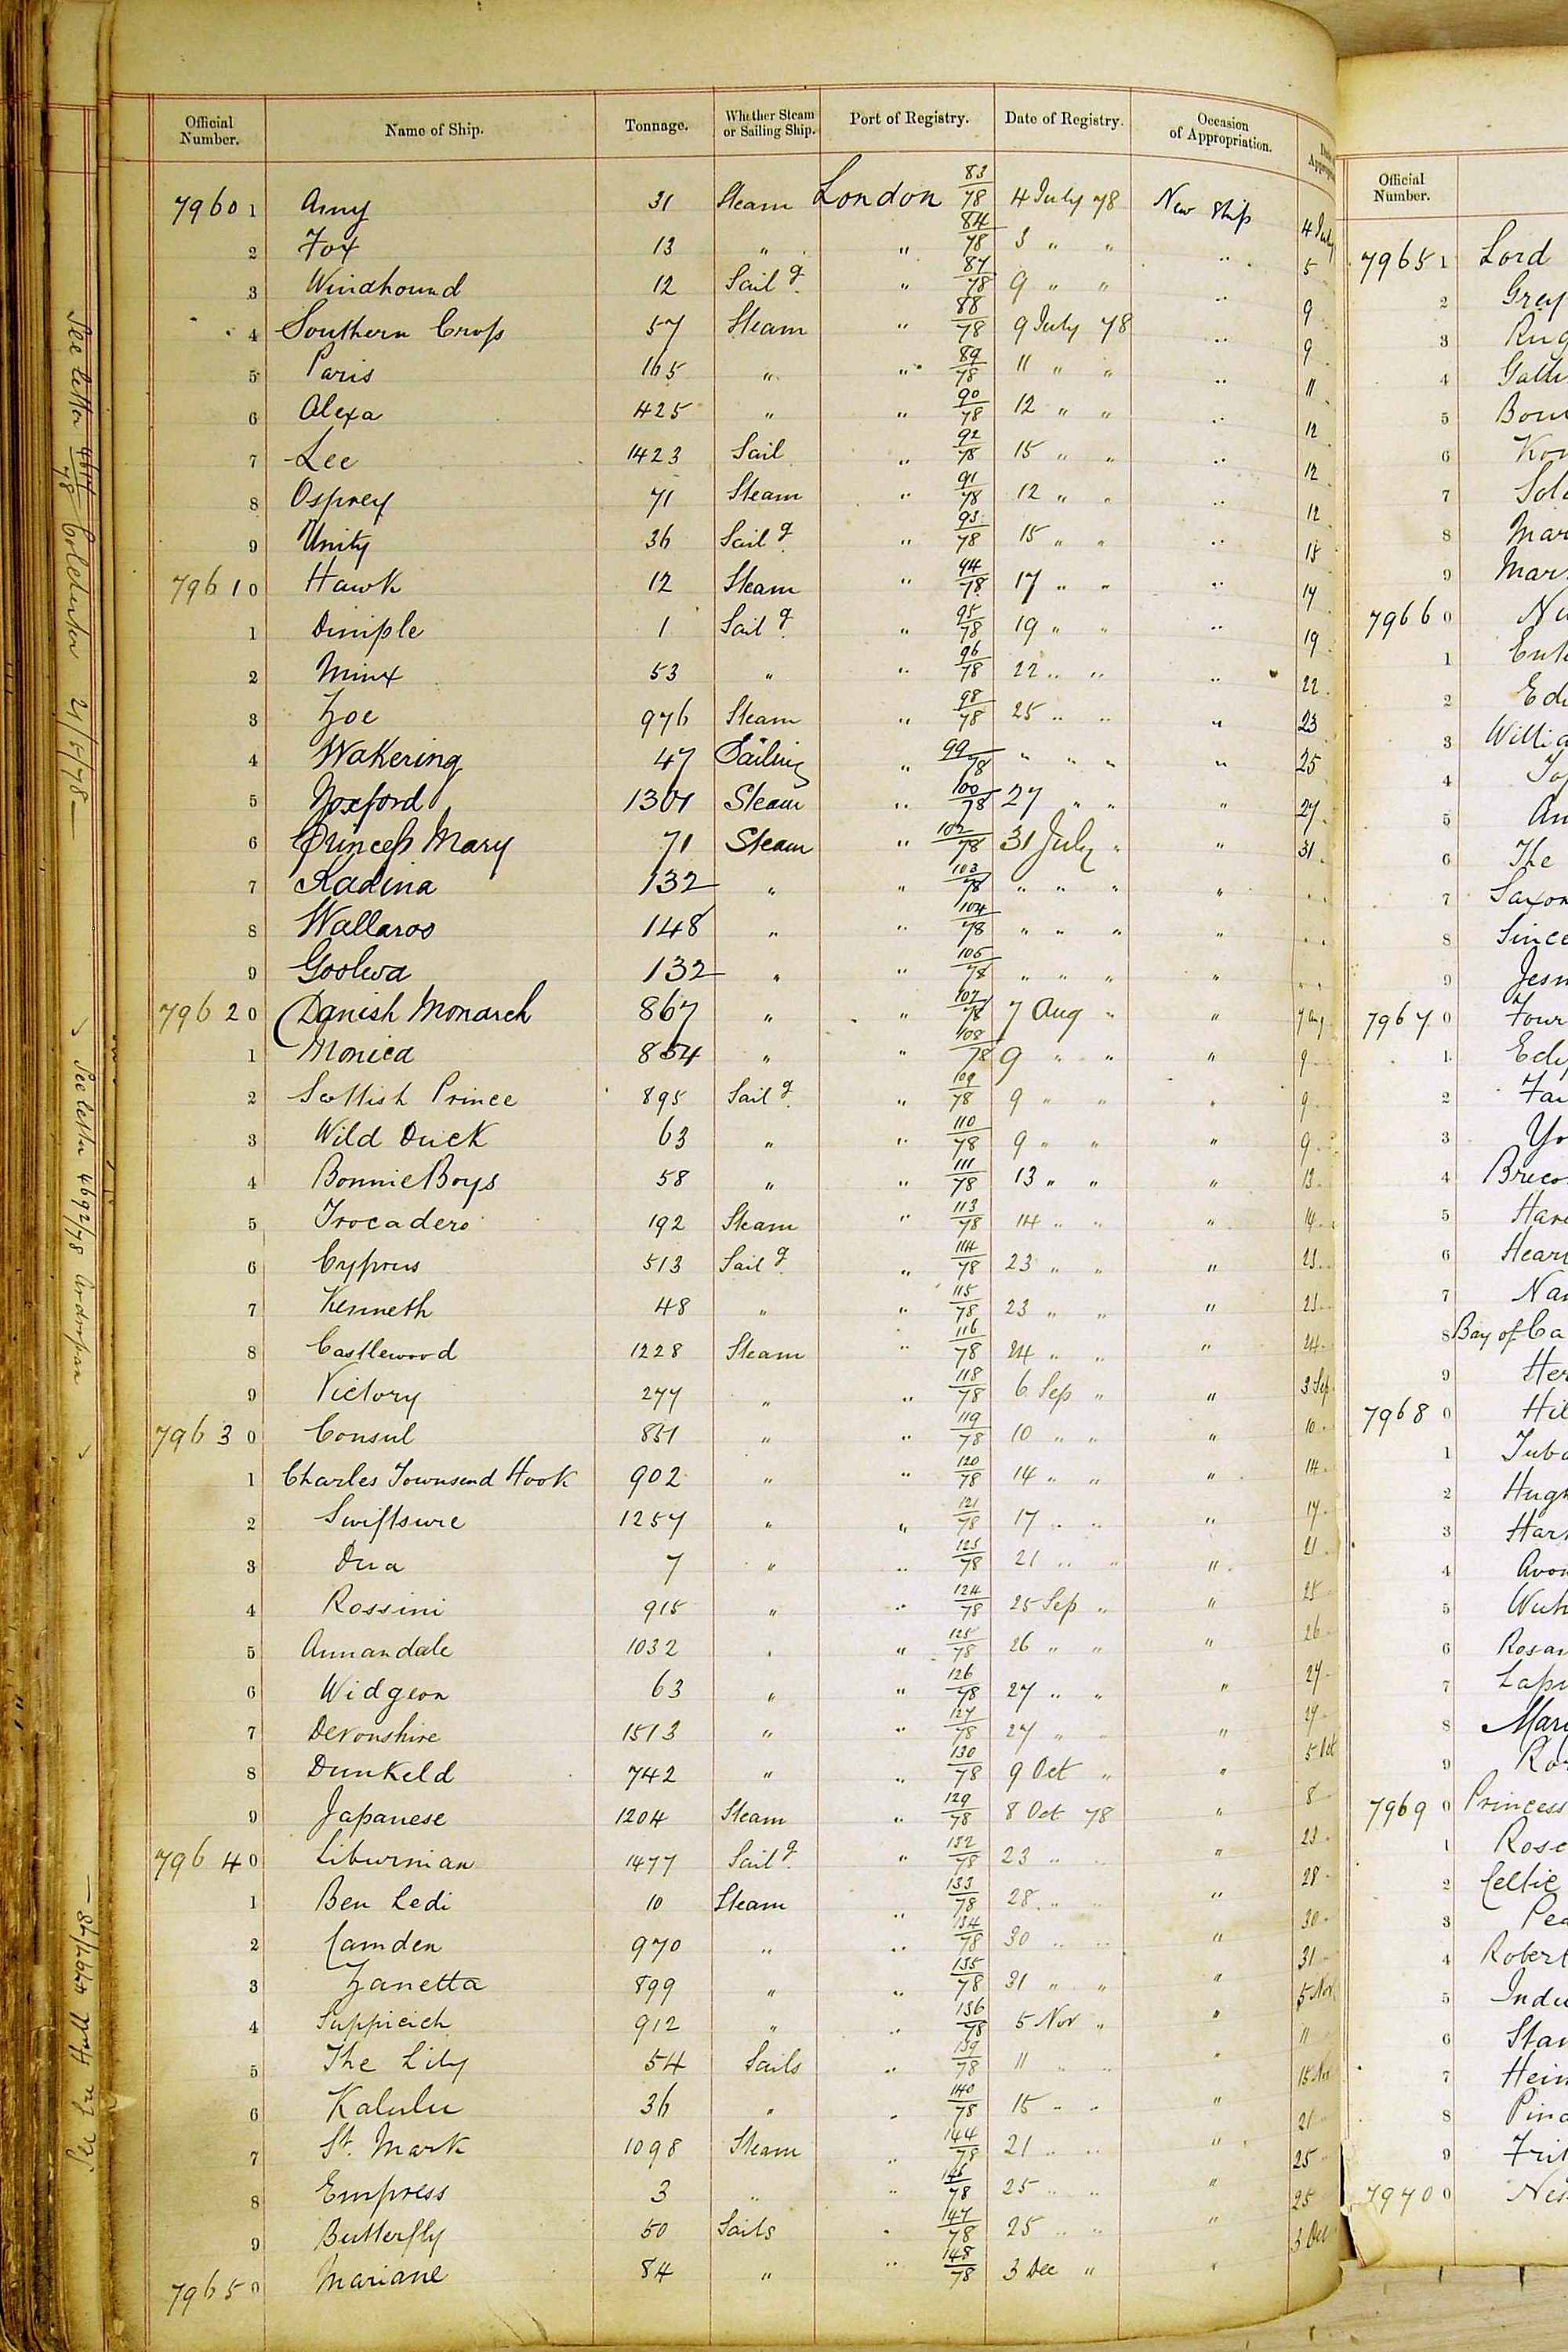 Official Number. Name of Ship. Tonnage. Whether Steam or Sailing Ship. Port of Registry. Date of Registry. Occasion of Appropriation.
79601 Amy 31 Steam London 83/78 4 July 78 New Ship 4 July
2 Fox 13 " " 84/78 3 " " " 5
3 Windhound 12 Sailg " 87/78 9 " " " 9
4 Southern Cross 57 Steam " 88/78 9 July 78 " 9
5 Paris 165 " " 89/78 11 " " " 11
6 Alexa 425 " " 90/78 12 " " " 12
7 Lee 1423 Sail " 92/78 15 " " " 12
8 Osprey 71 Steam " 91/78 12 " " " 12
9 Unity 36 Sailg " 93/78 15 " " " 15
79610 Hawk 12 Steam " 94/78 17 " " " 17
1 Dimple 1 Sailg " 95/78 19 " " " 19
2 Minx 53 " " 96/78 22 " " " 22
3 Zoe 976 Steam " 98/78 25 " " " 23
4 Wakering 47 Sailing " 99/78 " " " " 25
5 Yoxford 1301 Steam " 100/78 27 " " " 27
6 Princess Mary 71 Steam " 102/78 31 July " " 31
7 Kadina 132 " " 103/78 " " " "
8 Wallaroo 148 " " 104/78 " " " "
9 Goolwa 132 " " 105/78 " " " "
79620 Danish Monarch 867 " " 107/78 7 Aug " " 7 Aug
1 Monica 854 " " 108/78 9 " " " 9
2 Scottish Prince 895 Sailg " 109/78 9 " " " 9
3 Wild Duck 63 " " 110/78 9 " " " 9
4 Bonnie Boys 58 " " 111/78 13 " " " 13
5 Trocadero 192 Steam " 113/78 14 " " " 14
6 Cyprus 513 Sailg " 114/78 23 " " " 23
7 Kenneth 48 " " 115/78 23 " " " 23
8 Castlewood 1228 Steam " 116/78 24 " " " 24
9 Victory 277 " " 118/78 6 Sep " " 3 Sep
79630 Consul 831 " " 119/78 10 " " " 10
1 Charles Townsend Hook 902 " " 120/78 14 " " " 14
2 Swiftsure 1257 " " 121/78 17 " " " 17
3 Dua 7 " " 123/78 21 " " " 21
4 Rossini 915 " " 124/78 25 Sep " " 25
5 Annandale 1032 " " 125/78 26 " " " 26
6 Widgeon 63 " " 126/78 27 " " " 27
7 Devonshire 1513 " " 127/78 27 " " " 27
8 Dunkeld 742 " " 130/78 9 Oct " " 5 Oct
9 Japanese 1204 Steam " 129/78 8 Oct 78 " 8
79640 Liburnian 1477 Sailg " 132/78 23 " " " 23
1 Ben Ledi 10 Steam " 133/78 28 " " " 28
2 Camden 970 " " 134/78 30 " " " 30
3 Zanetta 899 " " 135/78 31 " " " 31
4 Suppicich 912 " " 136/78 5 Nov " " 5 Nov
5 The Lily 54 Sails " 139/78 11 " " " 11
6 Kalulu 36 " " 140/78 15 " " " 15 Nov
7 St. Mark 1098 Steam " 144/78 21 " " " 21
8 Empress 3 " " 78 25 " " " 25
9 Butterfly 50 Sails " 147/78 25 " " " 25
79650 Mariane 84 " " 148/78 3 Dec " " 3 Dec
See letter
See letter 4692/78
Hull 4762/78
Official Number.
79651 Lord
2 Grey
3
4
5
6
7
8 Mar
9 Mar
79660
1
2
3 Willia
4
5
6 The
7 Saxon
8 Since
9 Jesm
79670 Four
1
2
3
4
5
6
7
8 Bay of Ca
9 Her
79680
1
2 Hugh
3
4
5
6
7
8
9
79690 Princess
1 Rose
2 Celtic
3
4 Robert
5
6
7
8
9
79700